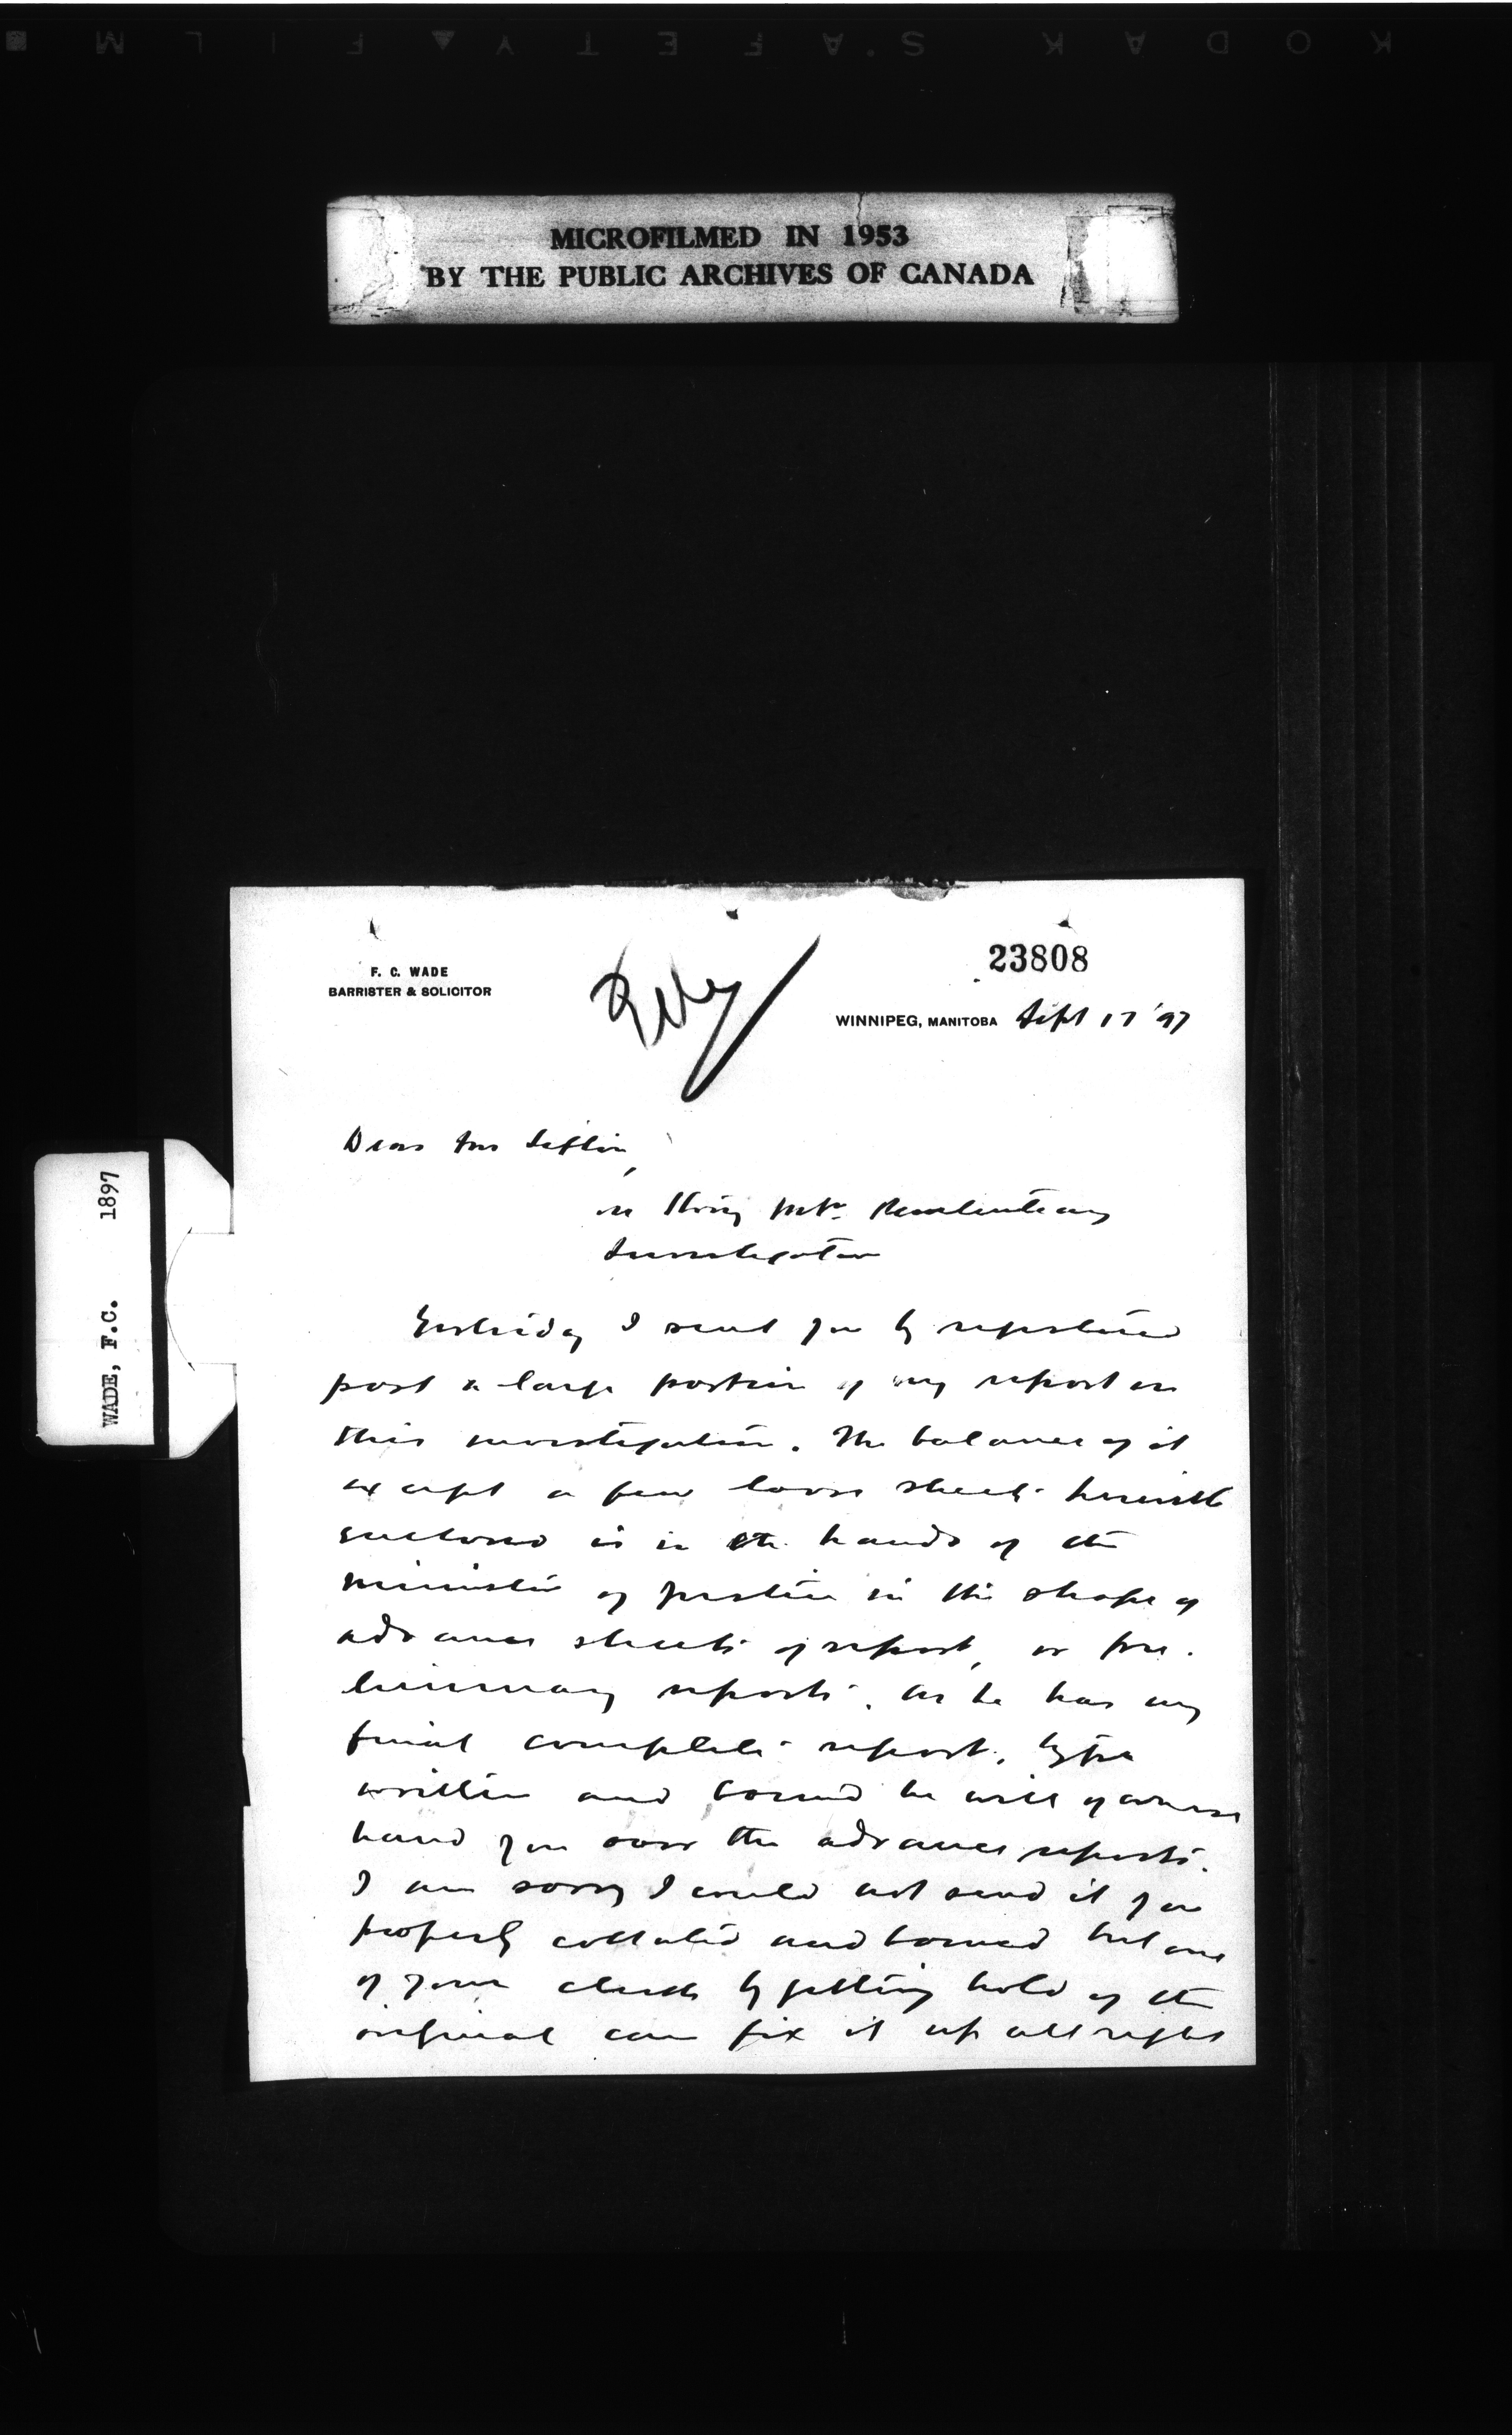 KODAK SAFETY FILM
MICROFILMED IN 1953
BY THE PUBLIC ARCHIVES OF CANADA
WADE, F.C. 1897
23808
F. C. WADE
BARRISTER & SOLICITOR
WINNIPEG, MANITOBA Sept 17 '97
Dear Mr Sifton,
re Stony Mtn. Penitentiary
Investigation
Yesterday I sent you by registered
post a large portion of my report on
this investigation. The balance of it
except a few loose sheets herewith
enclosed is in the hands of the
minister of justice in the shape of
advance sheets of report, or pre-
liminary reports. As he has my
final complete report, type
written and bound he will of course
hand you over the advance reports.
I am sorry I could not send it you
properly collated and bound but one
of your clerks by getting hold of the
original can fix it up all right